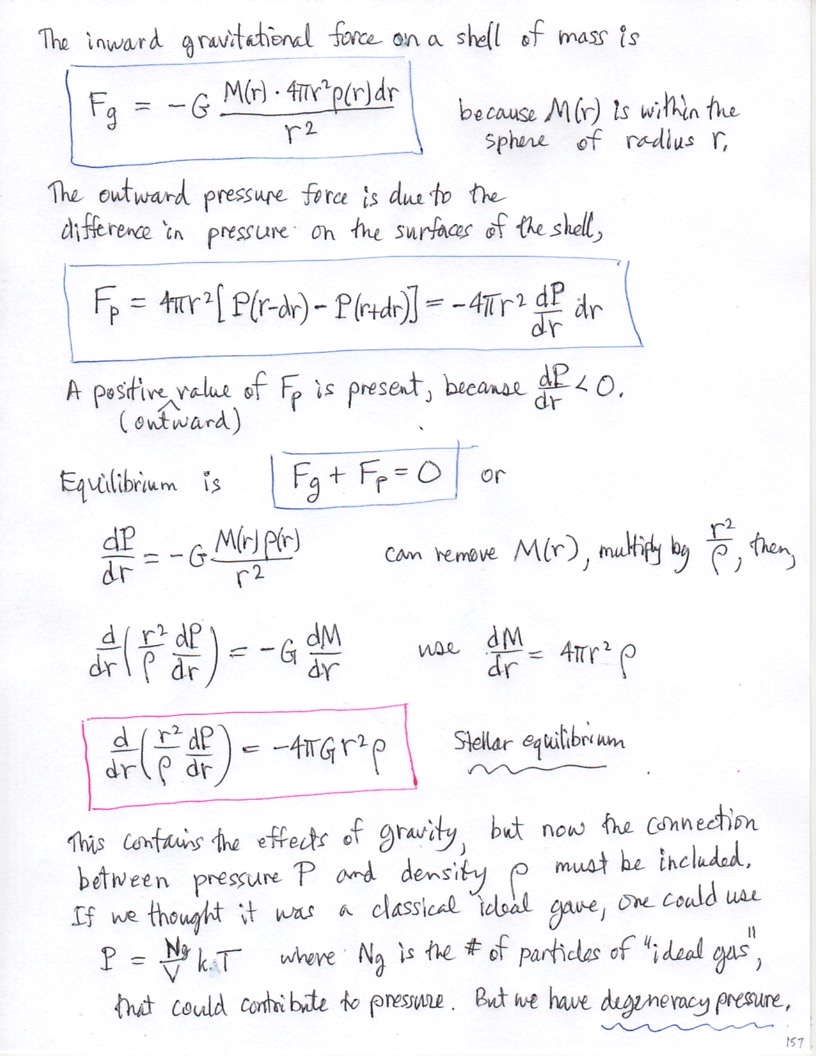 The inward gravitational force on a shell of mass is
Fg = -G M(r)·4πr²ρ(r)dr / r²
because M(r) is within the
sphere of radius r.
The outward pressure force is due to the
difference in pressure on the surfaces of the shell,
Fp = 4πr²[P(r-dr) - P(r+dr)] = -4πr² dP/dr dr
A positive value of Fp is present, because dP/dr < 0.
(outward)
Equilibrium is Fg + Fp = 0 or
dP/dr = -G M(r)ρ(r) / r² can remove M(r), multiply by r²/ρ, then,
d/dr (r²/ρ dP/dr) = -G dM/dr use dM/dr = 4πr²ρ
d/dr (r²/ρ dP/dr) = -4πGr²ρ Stellar equilibrium
This contains the effects of gravity, but now the connection
between pressure P and density ρ must be included.
If we thought it was a classical ideal gave, one could use
P = Ng/V k.T where Ng is the # of particles of "ideal gas",
that could contribute to pressure. But we have degeneracy pressure.
157